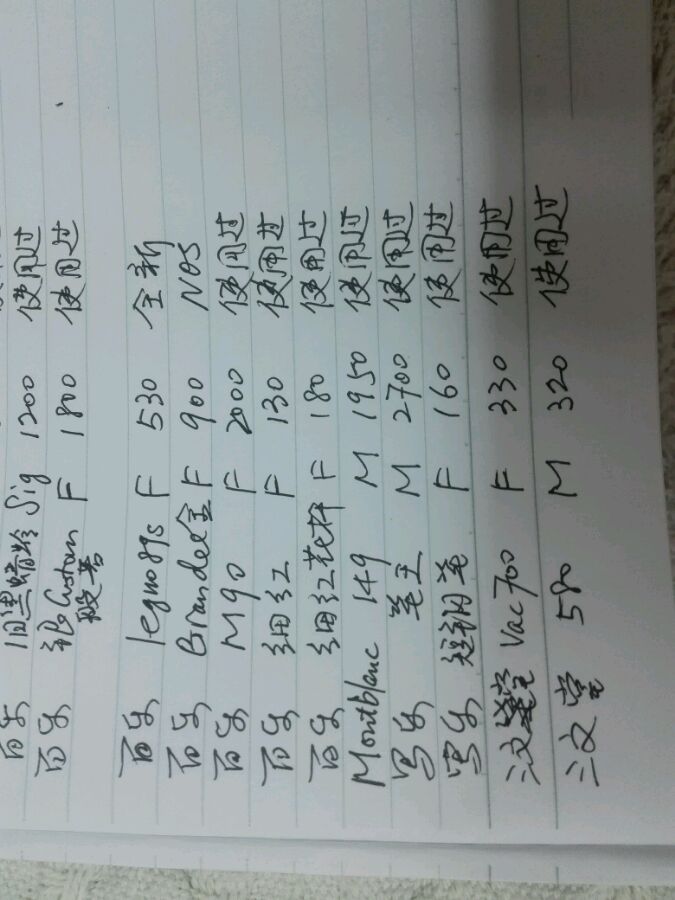 百乐 旧黑蜻蛉 Sig 1200 使用过
百乐 银Custom F 1800 使用过
百乐 legno89s F 530 全新
百乐 Grandee金 F 900 NOS
百乐 M90 F 2000 使用过
百乐 细红 F 130 使用过
百乐 细红花杆 F 180 使用过
Montblanc 149 M 1950 使用过
写乐 笔王 M 2700 使用过
写乐 短钢笔 F 160 使用过
三文堂 Vac700 F 330 使用过
三文堂 580 M 320 使用过